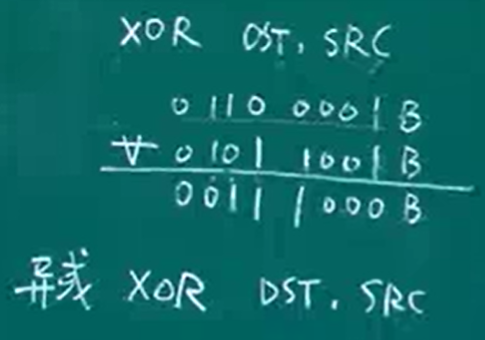 XOR DST, SRC
0110 0001B
∀ 0101 1001B
0011 1000B
异或 XOR DST, SRC